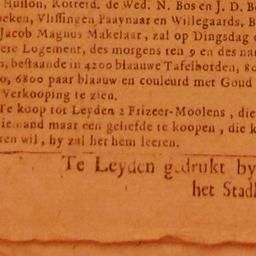 Hulion, Rotterd. de Wed. N. Bos en J. D. B
beken, Vlissingen Paaynaar en Willegaards, B
Jacob Magnus Makelaar, zal op Dingsdag
ere Logement, des morgens ten 9 en des na
n, bestaande in 4200 blaauwe Tafelborden, 80
0, 6800 paar blaauw en couleurd met Goud
Verkooping te zien.
Te koop tot Leyden 2 Frizeer-Moolens, die
iemand maar een geliefde te koopen, die k
ren wil, hy zal her hem leeren.
Te Leyden gedrukt by
het Stadh